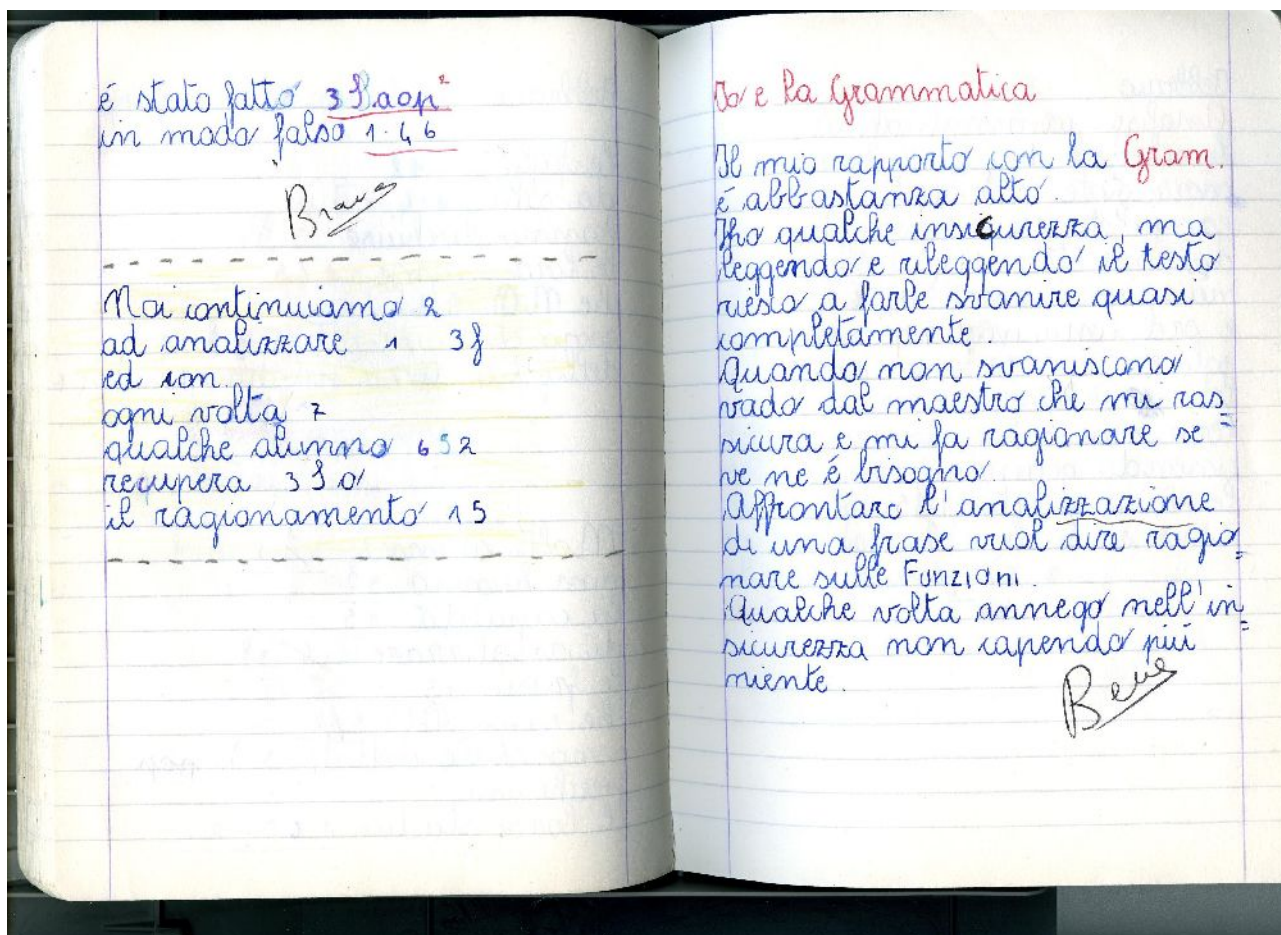 é stato fatto 3
in modo falso 1.46
Bravo
Noi continuiamo 2
ad analizzare 1 3f
ed con.
ogni volta 7
qualche alunno 6 5 2
recupera 3
il ragionamento 15
Io e la Grammatica
Il mio rapporto con la Gram.
é abbastanza alto.
Ho qualche insicurezza, ma
leggendo e rileggendo il testo
riesco a farle svanire quasi
completamente.
Quando non svaniscono
vado dal maestro che mi ras=
sicura e mi fa ragionare se
ve ne é bisogno.
Affrontare l'analizzazione
di una frase vuol dire ragio=
nare sulle Funzioni.
Qualche volta annego nell'in=
sicurezza non capendo piú
niente.
Bene